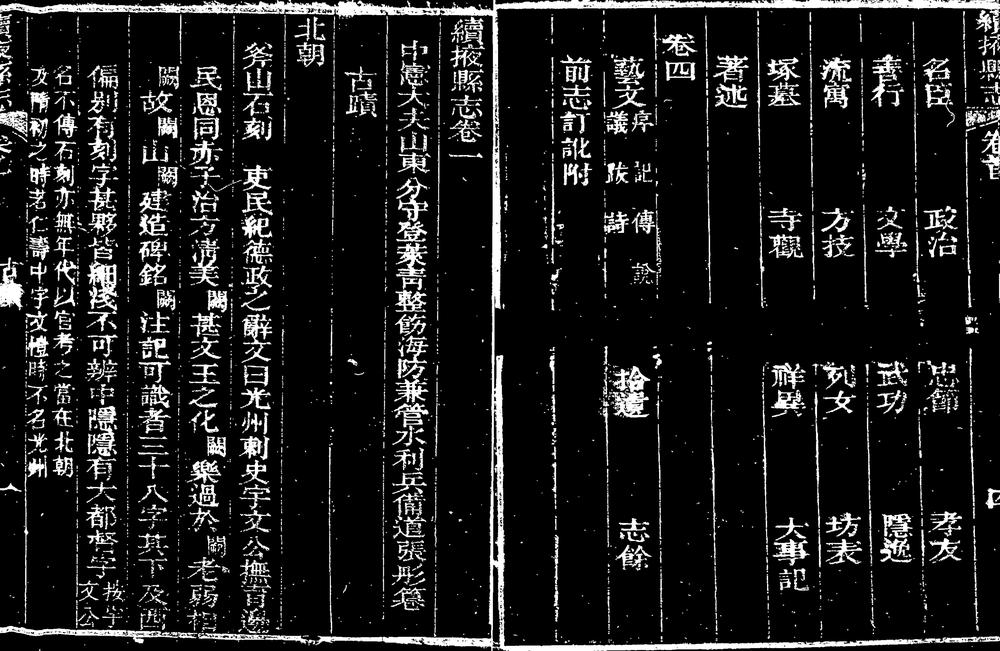 續掖縣志 卷首
名臣 政治 忠節 孝友
善行 文學 武功 隱逸
流寓 方技 列女 坊表
塚墓 寺觀 祥異 大事記
著述
卷四
藝文 序 記 傳 說 議 跋 詩 拾遺 志餘
前志訂訛附
續掖縣志卷一
中憲大夫山東分守登萊青整飭海防兼管水利兵備道張彤纂
古蹟
北朝
斧山石刻 吏民紀德政之辭文曰光州刺史宇文公撫育邊
民恩同赤子治方清美闕甚文王之化闕樂過於闕老弱相
闕故闕山闕建造碑銘闕注記可識者三十八字其下及西
偏別有刻字甚夥皆細淺不可辨中隱隱有大都督字 按宇文公
名不傳石刻亦無年代以官考之當在北朝
及隋初之時若仁壽中宇文愷時不名光州